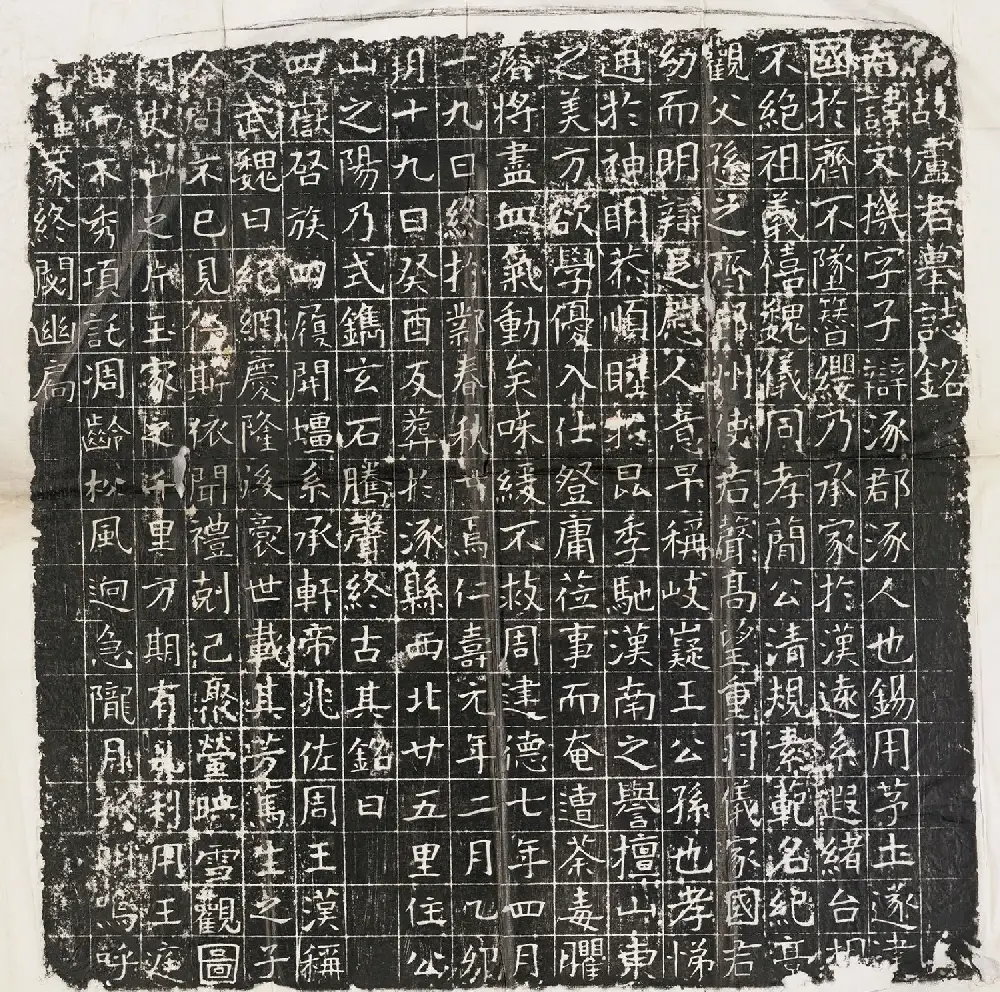 故盧君墓誌銘
君諱文機字子辯涿郡涿人也錫用茅土遂建
國於齊不墜簪纓乃承家於漢遠系遐緒台相
不絕祖義僖魏儀同孝簡公清規素範名絕高
觀父遜之齊郢州使君聲高望重羽儀家國君
幼而明辯足慰人意早稱岐嶷王公孫也孝悌
通於神明恭順睦於昆季馳漢南之譽擅山東
之美方欲學優入仕登庸莅事而奄遭荼毒臞
瘠將盡血氣動矣味緩不救周建德七年四月
十九日終於鄴春秋廿焉仁壽元年二月乙卯
朔十九日癸酉反葬於涿縣西北廿五里住公
山之陽乃式鐫玄石騰聲終古其銘曰
四嶽啓族四履開壃系承軒帝兆佐周王漢稱
文武魏曰紀綱慶隆後裔世載其芳篤生之子
令問不已見 斯依聞禮剋己聚螢映雪觀圖
閱史山之片玉家之千里方期有 利用王庭
苗而不秀項託凋齡松風迥急隴月 嗚呼
篆終閟幽扃